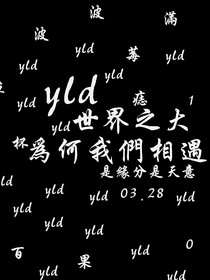 波 滿
波
yld yld 莓
yld
yld
yld 1
yld 世界之大
杯 為何我們相遇
是緣分是天意
yld yld 03.28
yld yld yld
yld yld yld
yld yld
百 果 0
yld yld